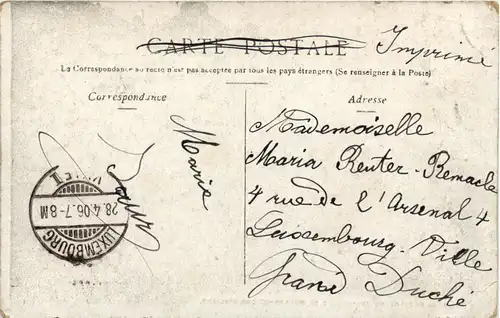 CARTE POSTALE
Imprimé
La Correspondance au recto n'est pas acceptée par tous les pays étrangers (Se renseigner à la Poste)
Correspondance
Maria
LUXEMBOURG
VILLE
28.4.06.7-8M
Adresse
Mademoiselle
Maria Reuter-Remacle
4 rue de l'Arsenal 4
Luxembourg-Ville
Grand Duché